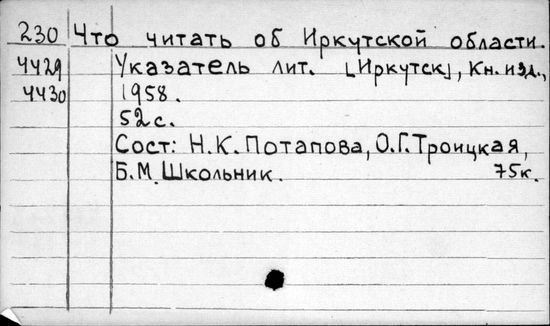 230 Что читать об Иркутской области.
4429 Указатель лит. [Иркутск], Кн. изд.,
4430 1958.
52 с.
Сост: Н.К. Потапова, О.Г. Троицкая,
Б.М. Школьник. 75 к.